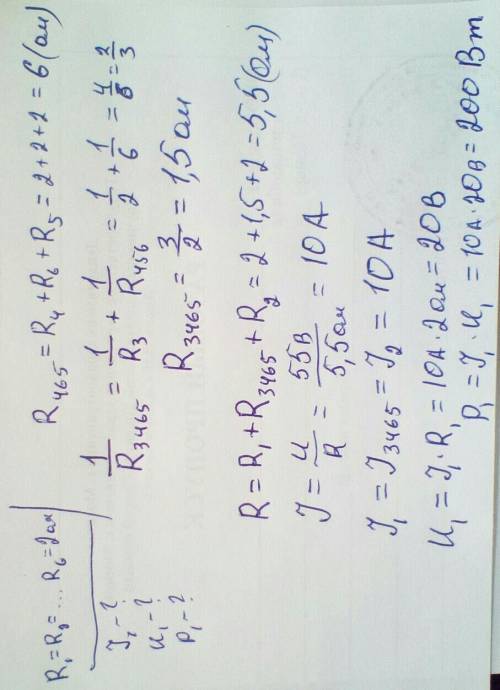 R₁=R₂=... R₆=2ом
J₁-?
U₁-?
P₁-?
R₄₆₅=R₄+R₆+R₅=2+2+2=6(ом)
1/R₃₄₆₅ = 1/R₃ + 1/R₄₅₆ = 1/2 + 1/6 = 4/6 = 2/3
R₃₄₆₅ = 3/2 = 1,5 ом
R=R₁+R₃₄₆₅+R₂=2+1,5+2=5,5(ом)
J = U/R = 55В/5,5ом = 10А
J₁=J₃₄₆₅=J₂=10А
U₁=J₁·R₁=10А·2ом=20В
P₁=J₁·U₁=10А·20В=200Вт